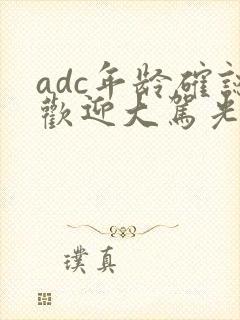 adc年龄確認
歡迎大駕光
璞真